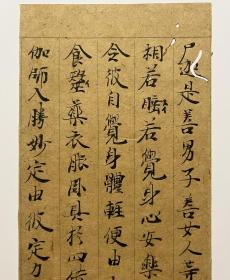 是善男子善女人業
相若睡若覺身心安樂
令彼自覺身體輕便由
食湌藥衣服卧具於四
伽師入勝妙定由彼定力